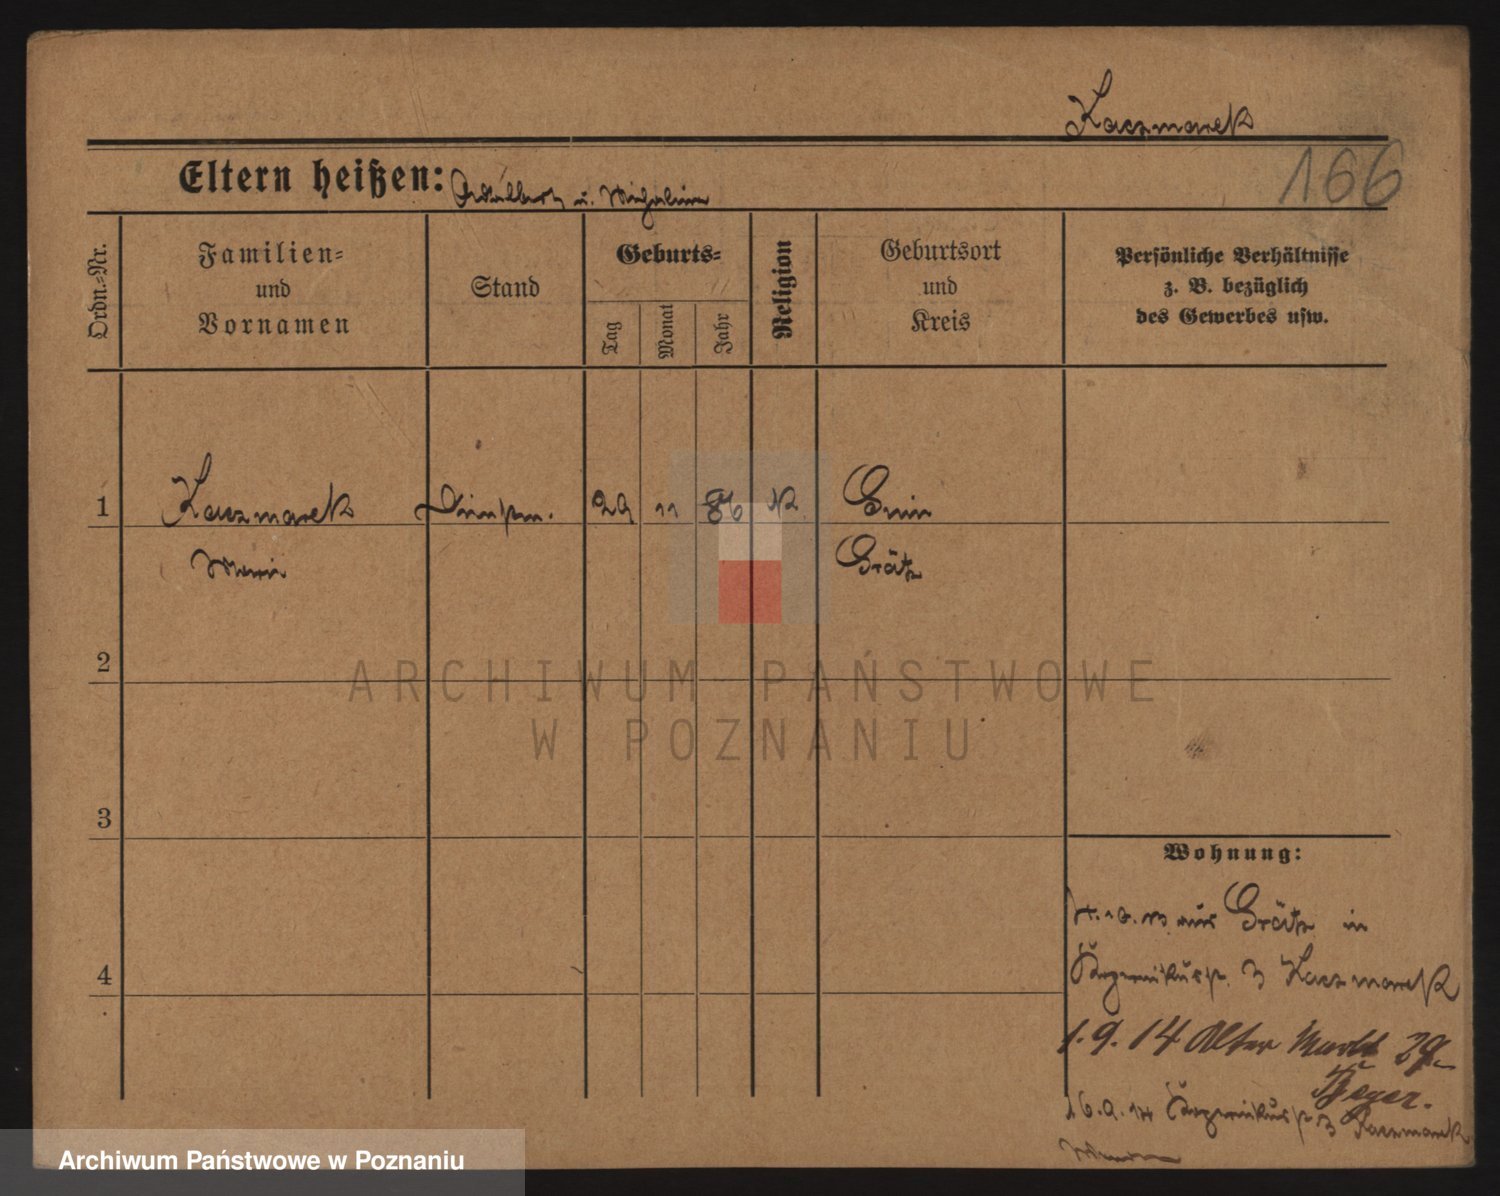 Kaczmarek
166
Eltern heißen: Adalbert u. Michalina
Ordn.-Nr.
Familien-
und
Vornamen
Stand
Geburts-
Tag
Monat
Jahr
Religion
Geburtsort
und
Kreis
Persönliche Verhältnisse
z. B. bezüglich
des Gewerbes usw.
1 Kaczmarek 29 11 86 K.
Grätz
2
3
4
ARCHIWUM PAŃSTWOWE
W POZNANIU
Wohnung:
aus Grätz in
3 Kaczmarek
1.9.14 Alter Markt
Beyer.
16.9.14 3 Kaczmarek
Archiwum Państwowe w Poznaniu